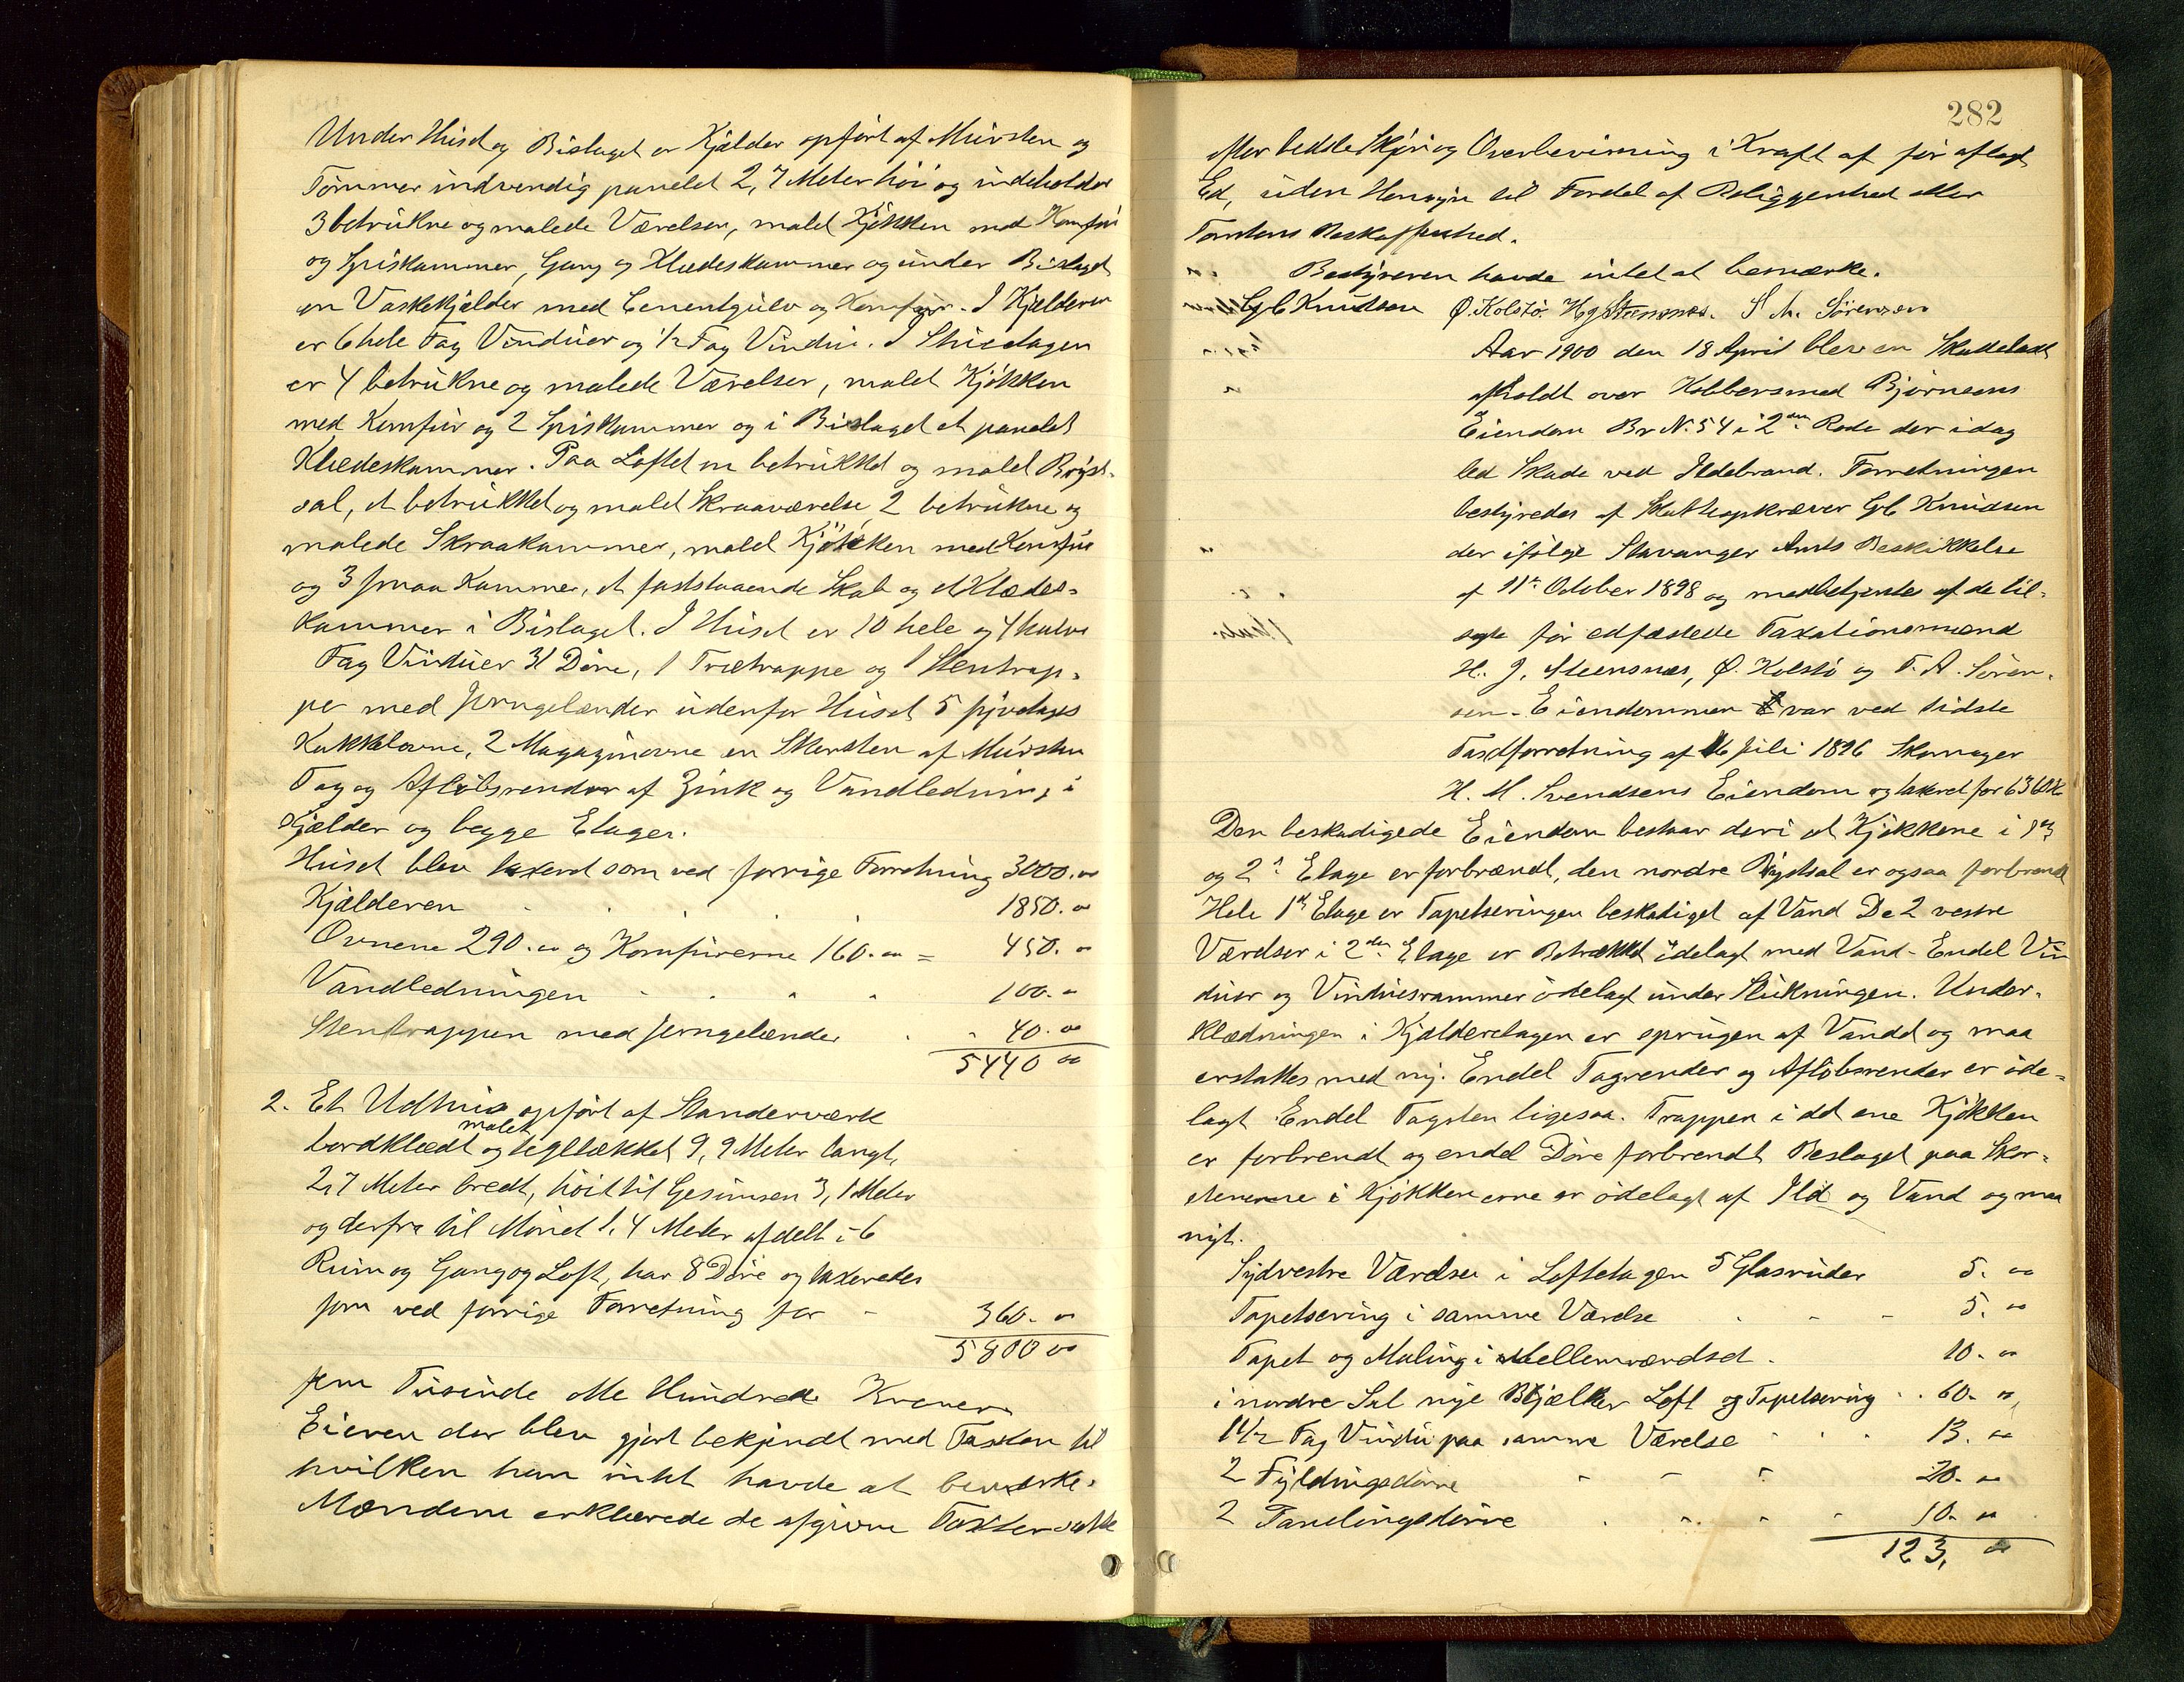 Under Huset og Bislaget er Kjælder opført af Mursten og
Tømmer indvendig panelet 2,7 Meter høi og indeholder
3 betrukne og malede Værelser, malet Kjøkken med Komfur
og Spiskammer, Gang og Klædeskammer og under Bislaget
en Vaskekjelder med Cementgulv og Komfur. I Kjælderen
er 6 hele Fag Vinduer og 1/2 Fag Vindu. I Stuedagen
er 4 betrukne og malede Værelser, malet Kjøkken
med Komfur og 2 Spiskammer og i Bislaget et panelet
Klædeskammer. Paa Loftet en betrukket og malet Bryst-
sal, et betrukket og malet Skraaværelse 2 betrukne og
malede Skraakammer, malet Kjøkken med Komfur
og 3 smaa Kammer, et faststaaende Skab og et Klædes-
kammer i Bislaget. I Huset er 10 hele og 4 halve
Fag Vinduer 31 Døre, 1 Trætrappe og 1 Stentrap-
pe med Jerngelænder udenfor Huset 5 fireetages
Kakkelovne, 2 Magazinovne en Skorsten af Mursten
Tag og Afløbsrender af Zink og Vandledning i
Kjælder og begge Etager.
Huset blev taxeret som ved forrige Forretning 3000. 00
Kjælderen 1850. 00
Ovnene 290. 00 og Komfurerne 160. 00 = 450. 00
Vandledningen 100. 00
Stentrappen med Jerngelænder 40. 00
5440 00
2. Et Udhus opført af Standerværk
malet
bordklædt og tegltækket 9,9 Meter langt,
2,7 Meter bredt, høit til Gesimsen 3,1 Meter
og derfra til Mønet 1,4 Meter afdelt i 6
Rum og Gang og Loft, har 8 Døre og taxeredes
som ved forrige Forretning for 360. 00
5800 00
fem Tusinde otte Hundrede Kroner
Eieren der blev gjort bekjendt med Taxten til
hvilken han intet havde at bemærke.
Mændene erklærede de afgivne Taxter satte
282
efter bedste Skjøn og Overbevisning i Kraft af før aflagt
Ed, uden Hensyn til Fordel af Beliggenhed eller
Tomtens Beskaffenhed.
Bestyreren havde intet at bemærke.
G C Knudsen Ø. Kolstø. H J Steensnæs. T A. Sørensen
Aar 1900 den 18 April blev en Skadetaxt
afholdt over Kobbersmed Bjørnsens
Eiendom Br N. 54 i 2den Rode der idag
led Skade ved Ildebrand. Forretningen
bestyredes af Skatteopkræver G C Knudsen
der ifølge Stavanger Amts Beskikkelse
af 11te October 1898 og medbetjentes af de til-
sagte før edfæstede Taxationsmænd
H. J. Steensnæs, Ø. Kolstø og T. A. Søren-
sen. Eiendommen var ved sidste
Taxtforretning af 16 Juli 1896 Skomager
H. M. Svendsens Eiendom og taxeret for 6360 K
Den beskadigede Eiendom bestaar deri at Kjøkkene i 1ste
og 2. Etage er forbrændt, den nordre Brystsal er ogsaa forbrændt
Hele 1ste Etage er Tapetseringen beskadiget af Vand De 2 vestre
Værelser i 2den Etage er Betrækket ødelagt med Vand - Endel Vin
duer og Vinduesrammer ødelagt under Slukningen. Under-
klædningen i Kjælderetagen er sprugen af Vandd og maa
erstattes med ny. Endel Tagrender og Afløbsrender er øde-
lagt Endel Tagsten ligesaa. Trappen i det ene Kjøkken
er forbrendt og endel Døre forbrendt Beslaget paa Skor-
stenerne i Kjøkkenerne er ødelagt af Ild og Vand og maa
nyt.
Sydvestre Værelse i Loftetagen 5 Glasruder 5. 00
Tapetsering i samme Værelse 5. 00
Tapet og Maling i Mellemværelset 10. 00
i nordre Sal nye Bjælker Loft og Tapetsering 60. 00
1 1/2 Fag Vindu paa samme Værelse 13. 00
2 Fyldingsdøre 20. 00
2 Panelingsdøre 10. 00
123, 00